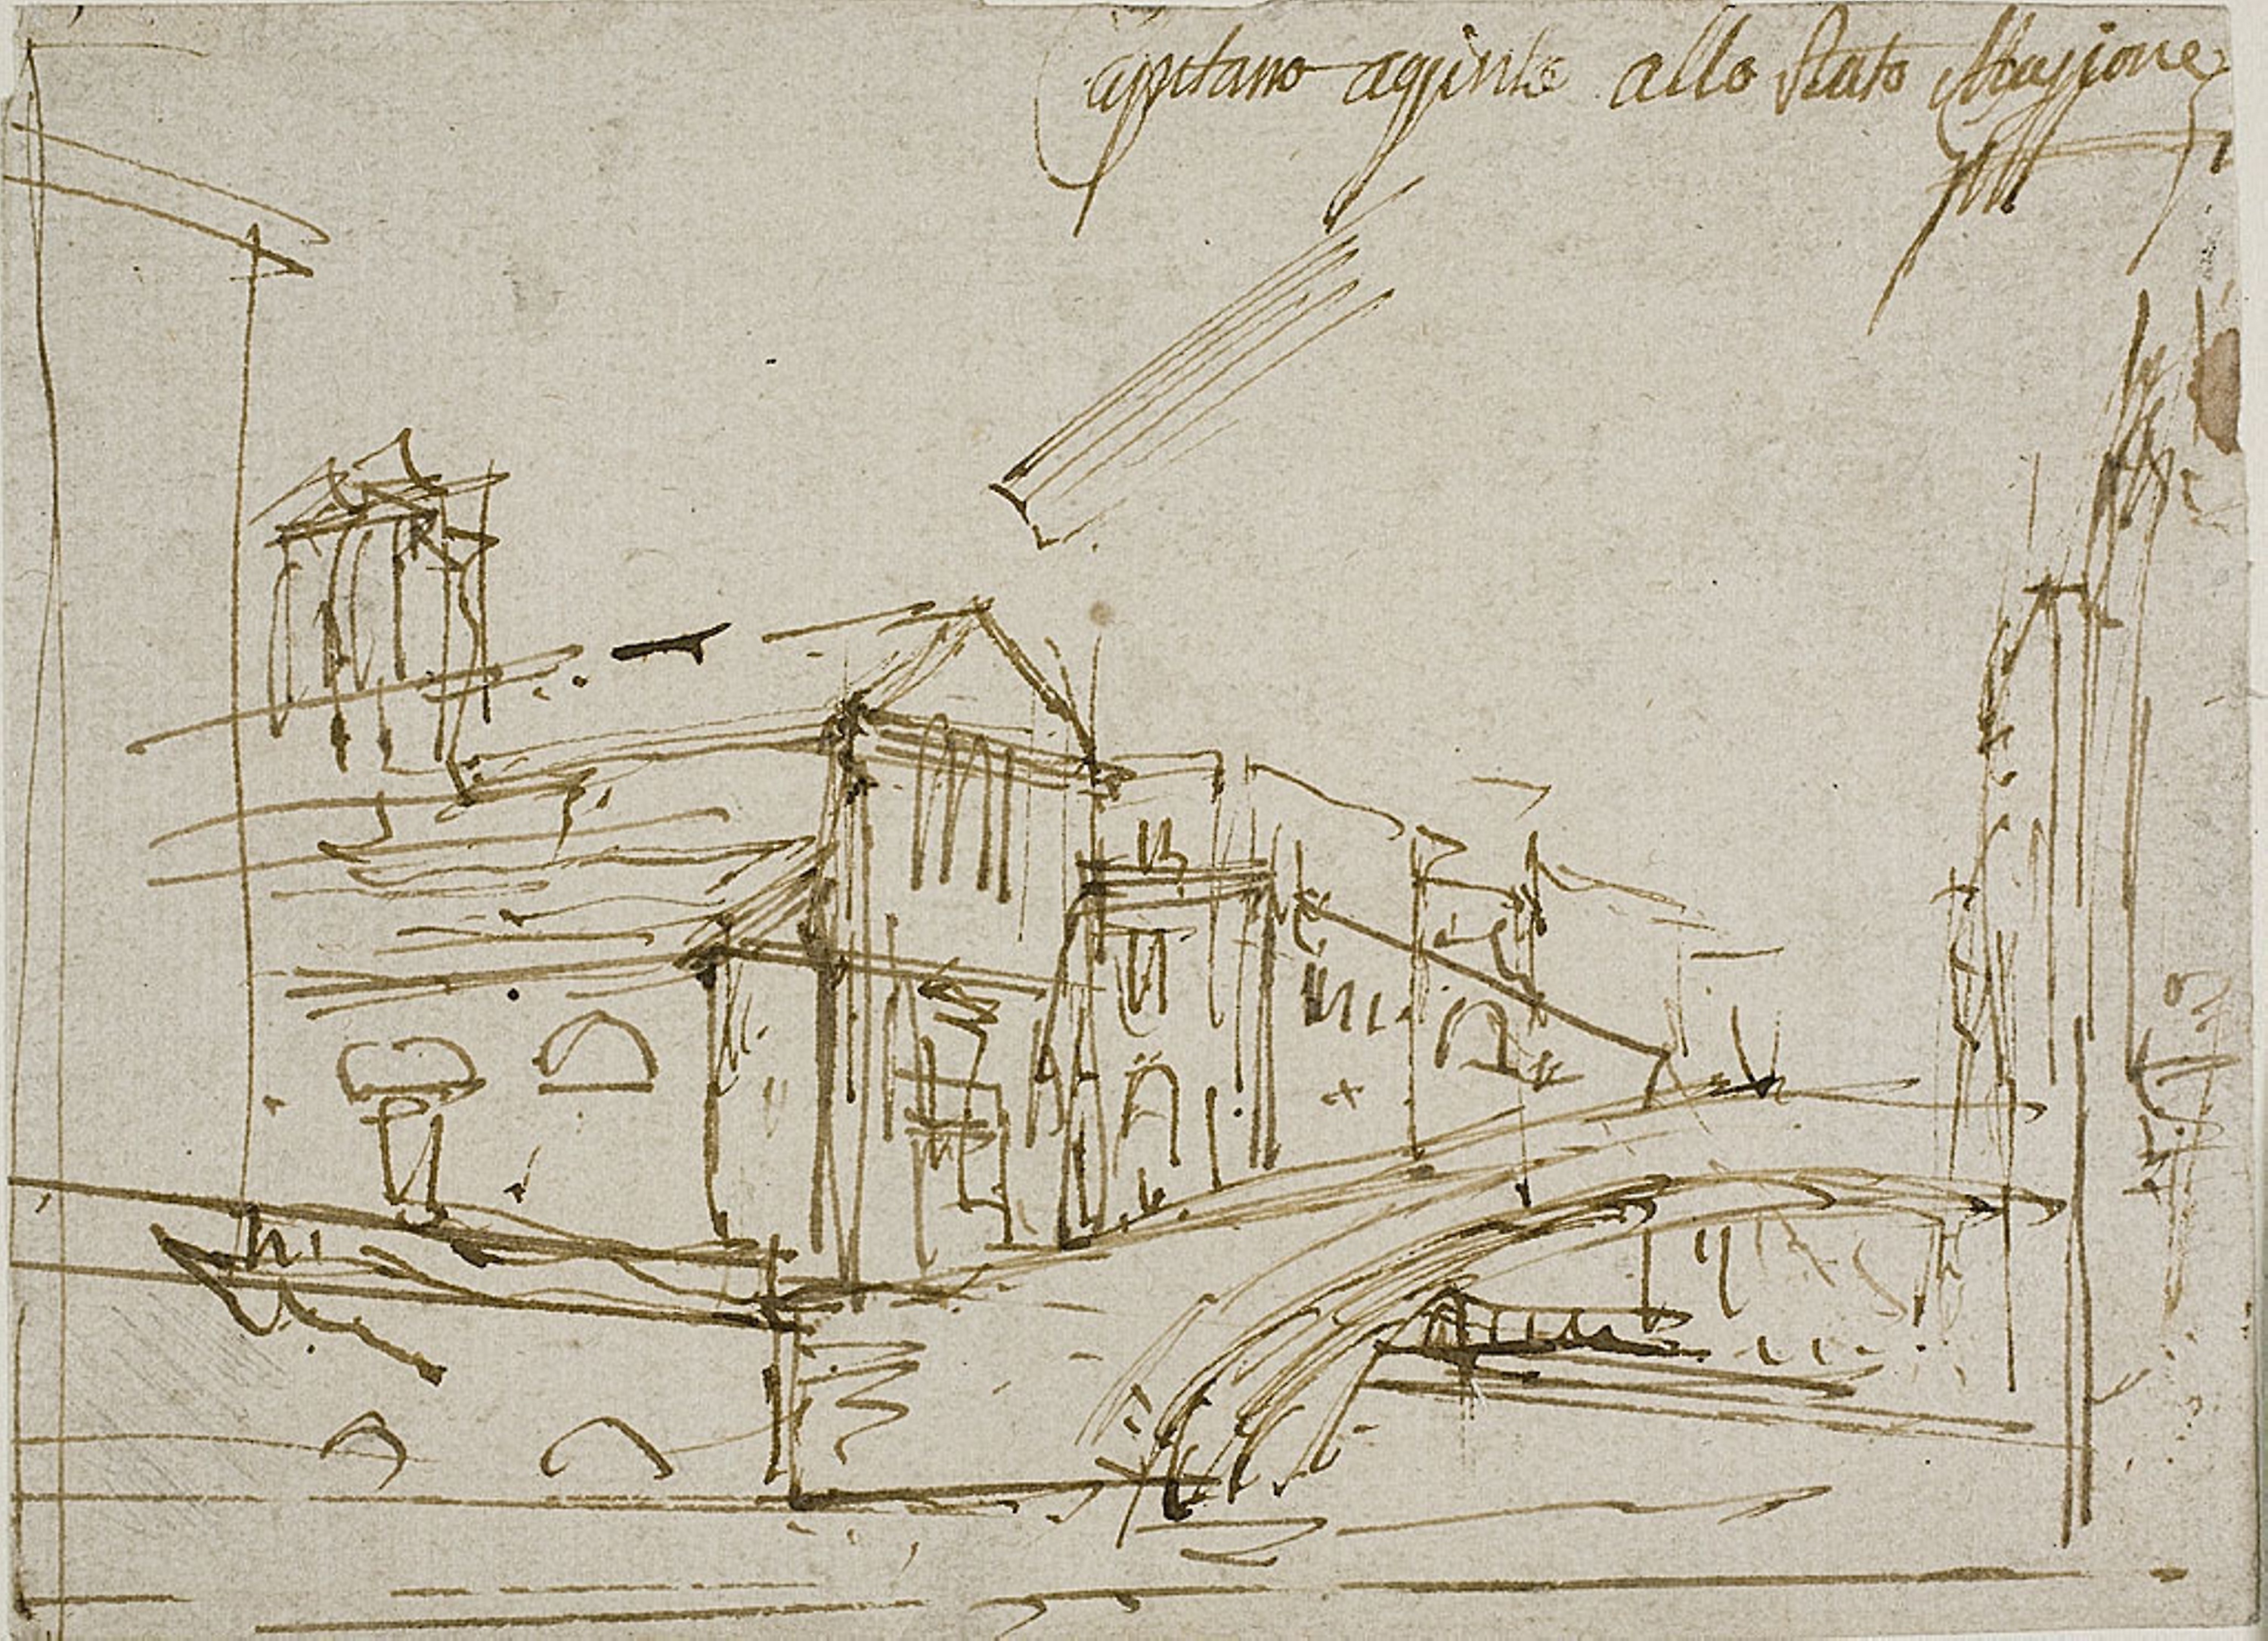 Capitano aggiunto allo Stato Maggiore